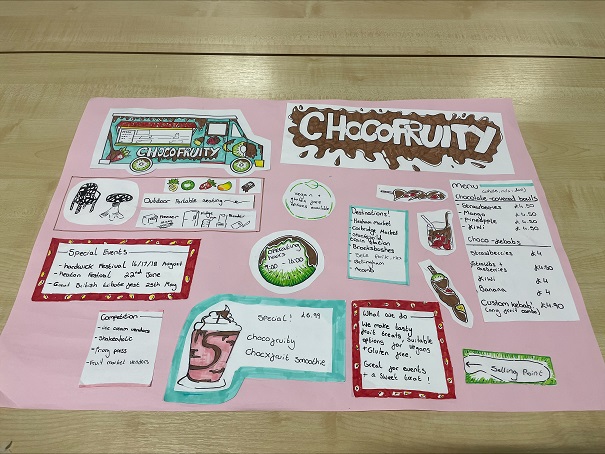 CHOCOFRUITY
CHOCOFRUITY
Outdoor Portable seating
vegan +
gluten free
options available
Special Events
- hardwick Festival 16/17/18 August
- Heaton Festival 22nd June
- Great British
fest 25th May
Operating
hours
9:00 - 16:00
Destinations!
Market
Market
Menu
Chocolate-covered bowls
- Strawberries £4.50
- Mango £4.50
- Pineapple £4.50
- Kiwi £4.50
Choco-kebabs
Strawberries £4
£4.50
Kiwi £4
Banana £4
Custom kebab £4.90
(any fruit combo)
Competition
- ice cream vendors
- Shakeaholic
- Fruit market vendors
Special! £6.99
chocofruity
Smoothie
What we do
We make tasty
fruit treats, suitable
options for vegans
+ Gluten free.
Great for events
+ a sweet treat!
Selling Point